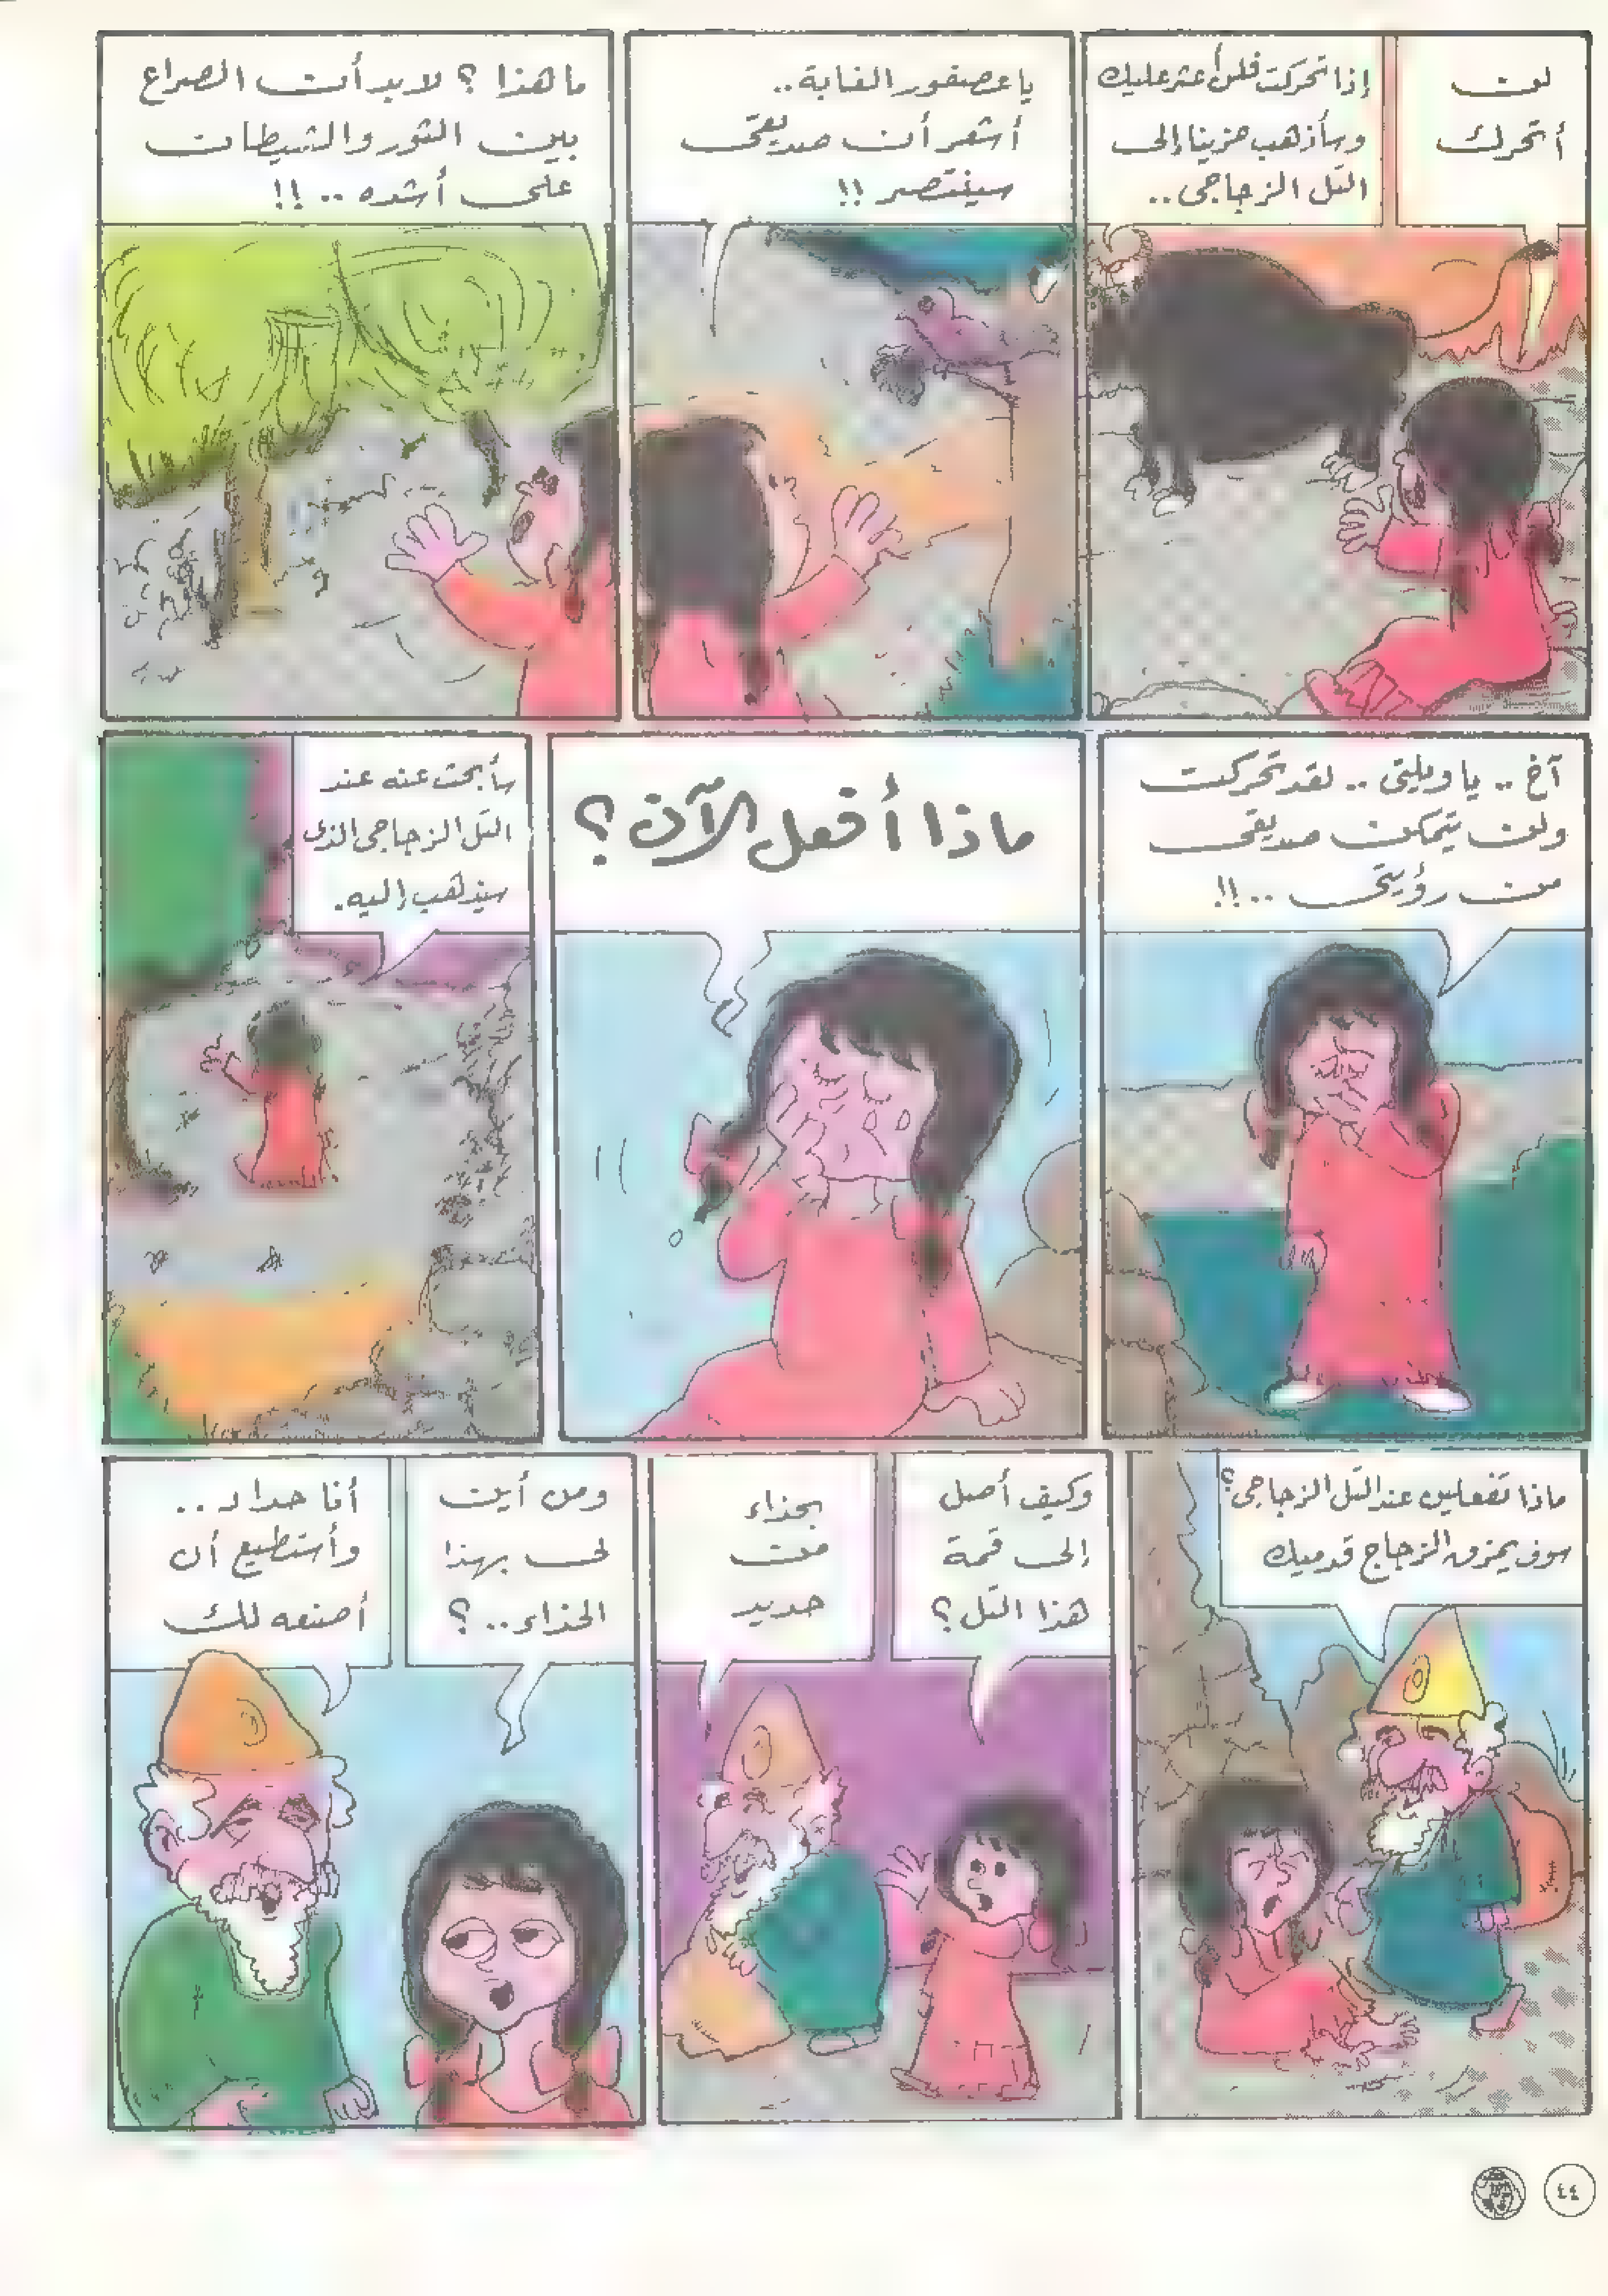 لن
أتحرك
إذا تحركت فلن أعثر عليك
وسأذهب حزينا إلى
التل الزجاجى..
يا عصفور الغابة..
أشعر أن صديقى
سينتصر !!
ما هذا ؟ لابد أن الصراع
بين الثور والشيطان
على أشده .. !!
آخ .. يا ويلتى .. لقد تحركت
ولن يتمكن صديقى
من رؤيتى .. !!
ماذا أفعل الآن ؟
سأبحث عنه عند
التل الزجاجى الذى
سيذهب إليه.
ماذا تفعلين عند التل الزجاجى ؟
سوف يمزق الزجاج قدميك
وكيف أصل
إلى قمة
هذا التل ؟
بحذاء
من
حديد
ومن أين
لى بهذا
الحذاء .. ؟
أنا حداد ..
وأستطيع أن
أصنعه لك
٤٤